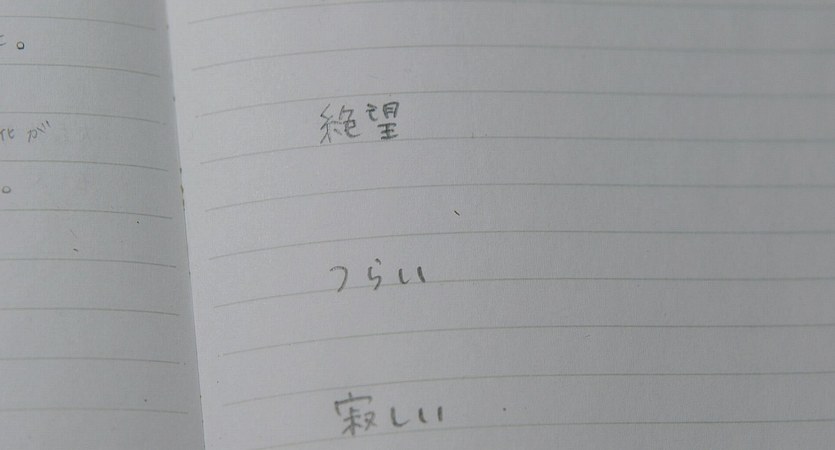 。
化が
。
絶望
つらい
寂しい